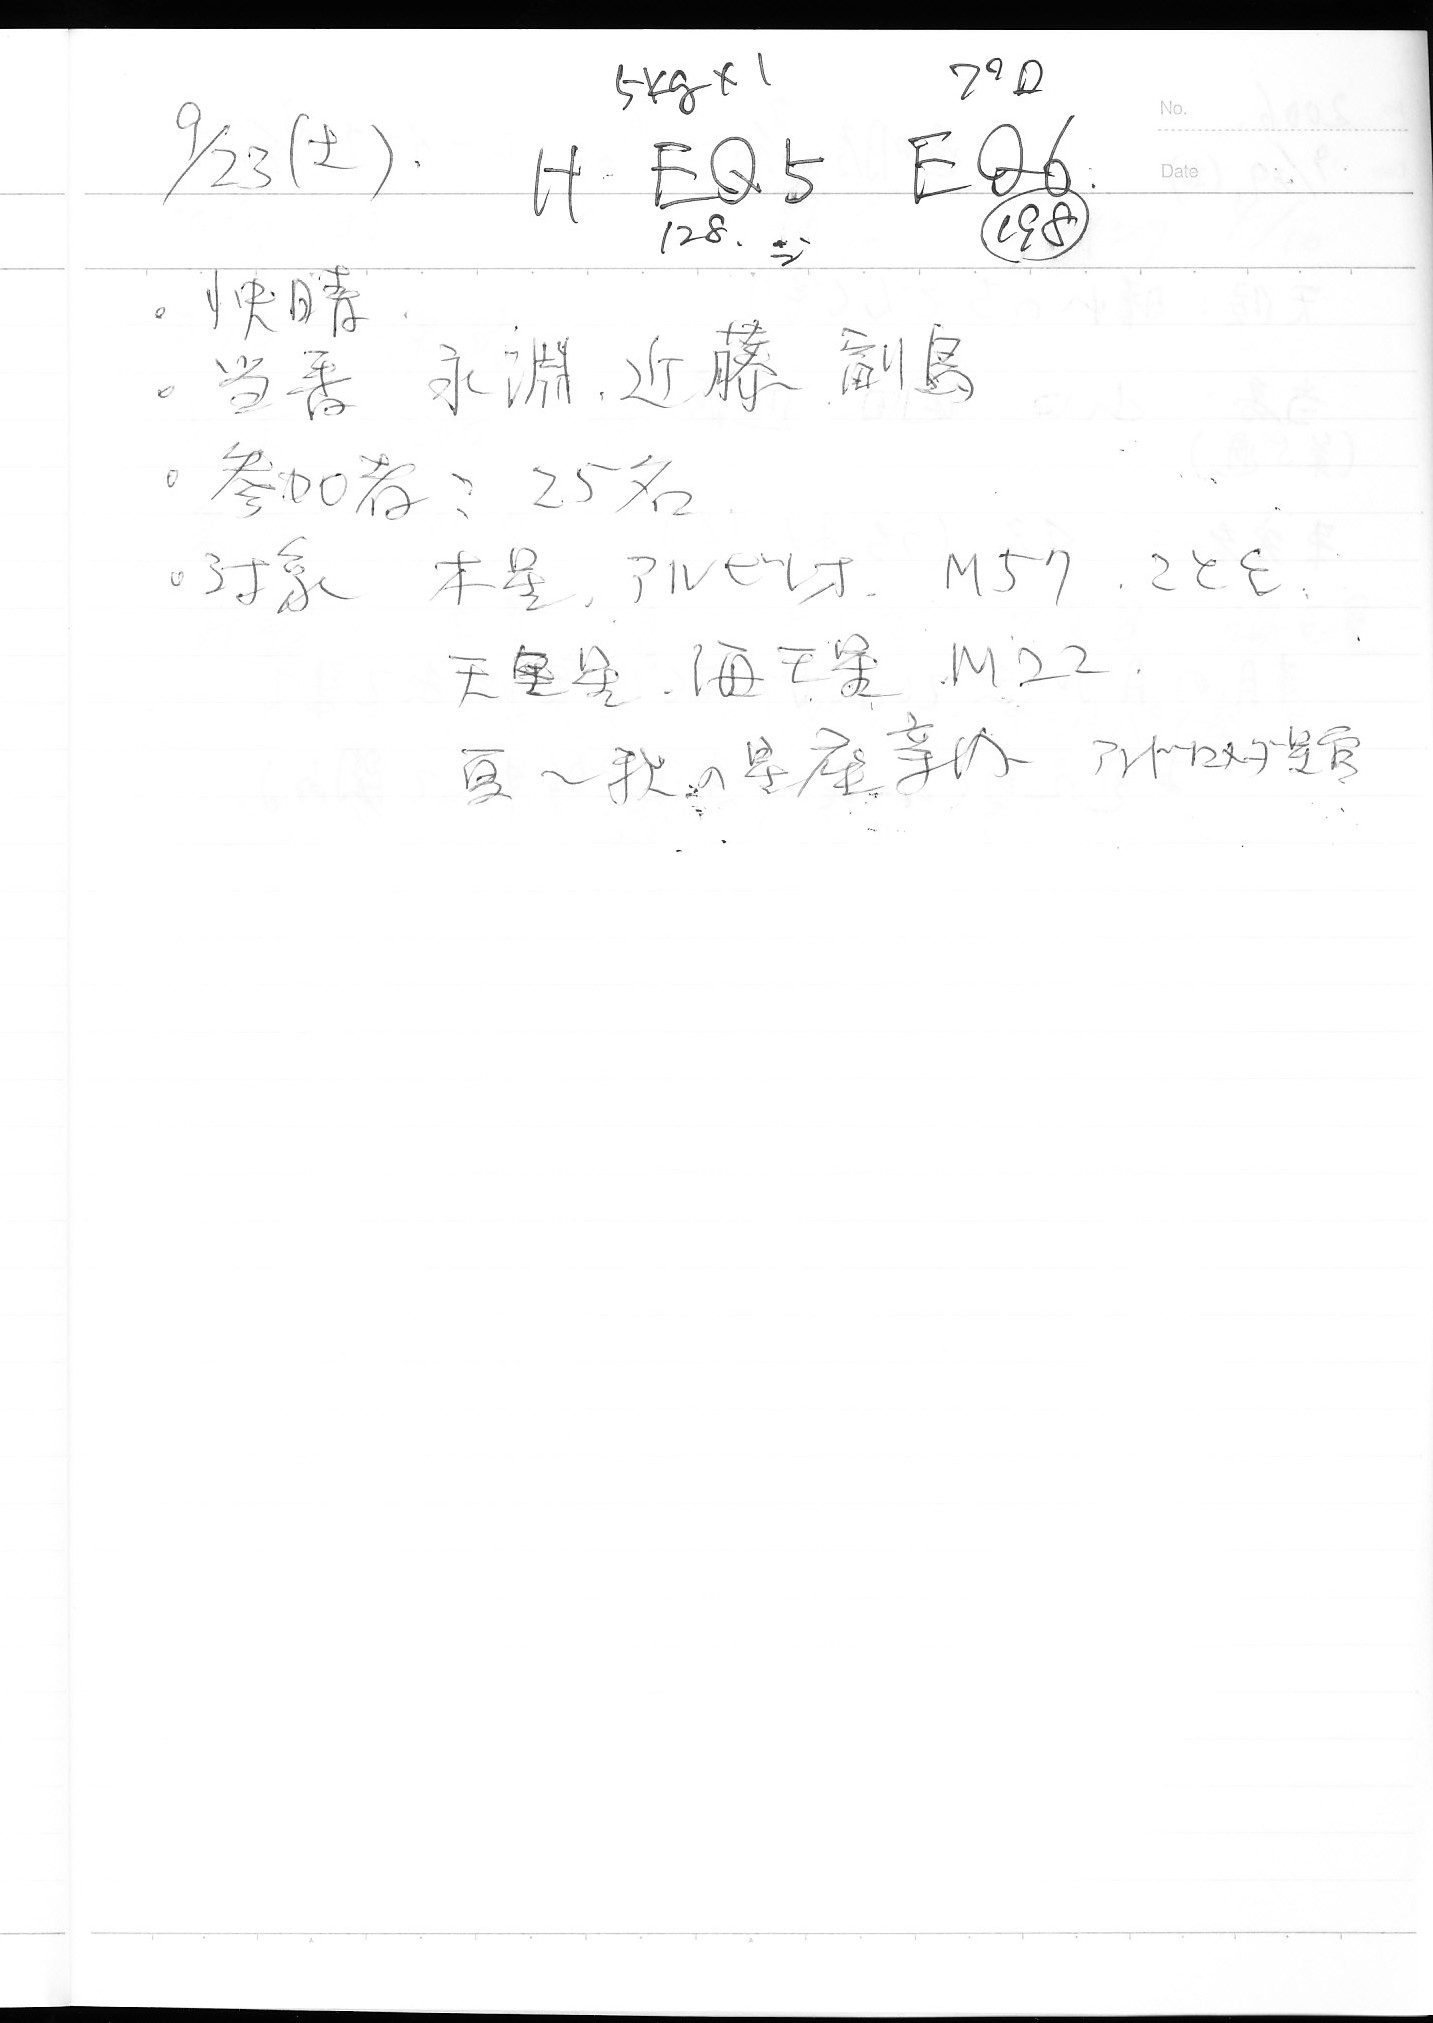 5kg×1
No.
9/23(土).
H EQ5 EQ6.
Date
128. 198
・快晴.
・当番 永淵.近藤 副島
・参加者: 25名.
・対象 木星.アルビレオ. M57.こと座.
天王星.海王星.M22.
夏〜秋の星座案内 アンドロメダ星雲